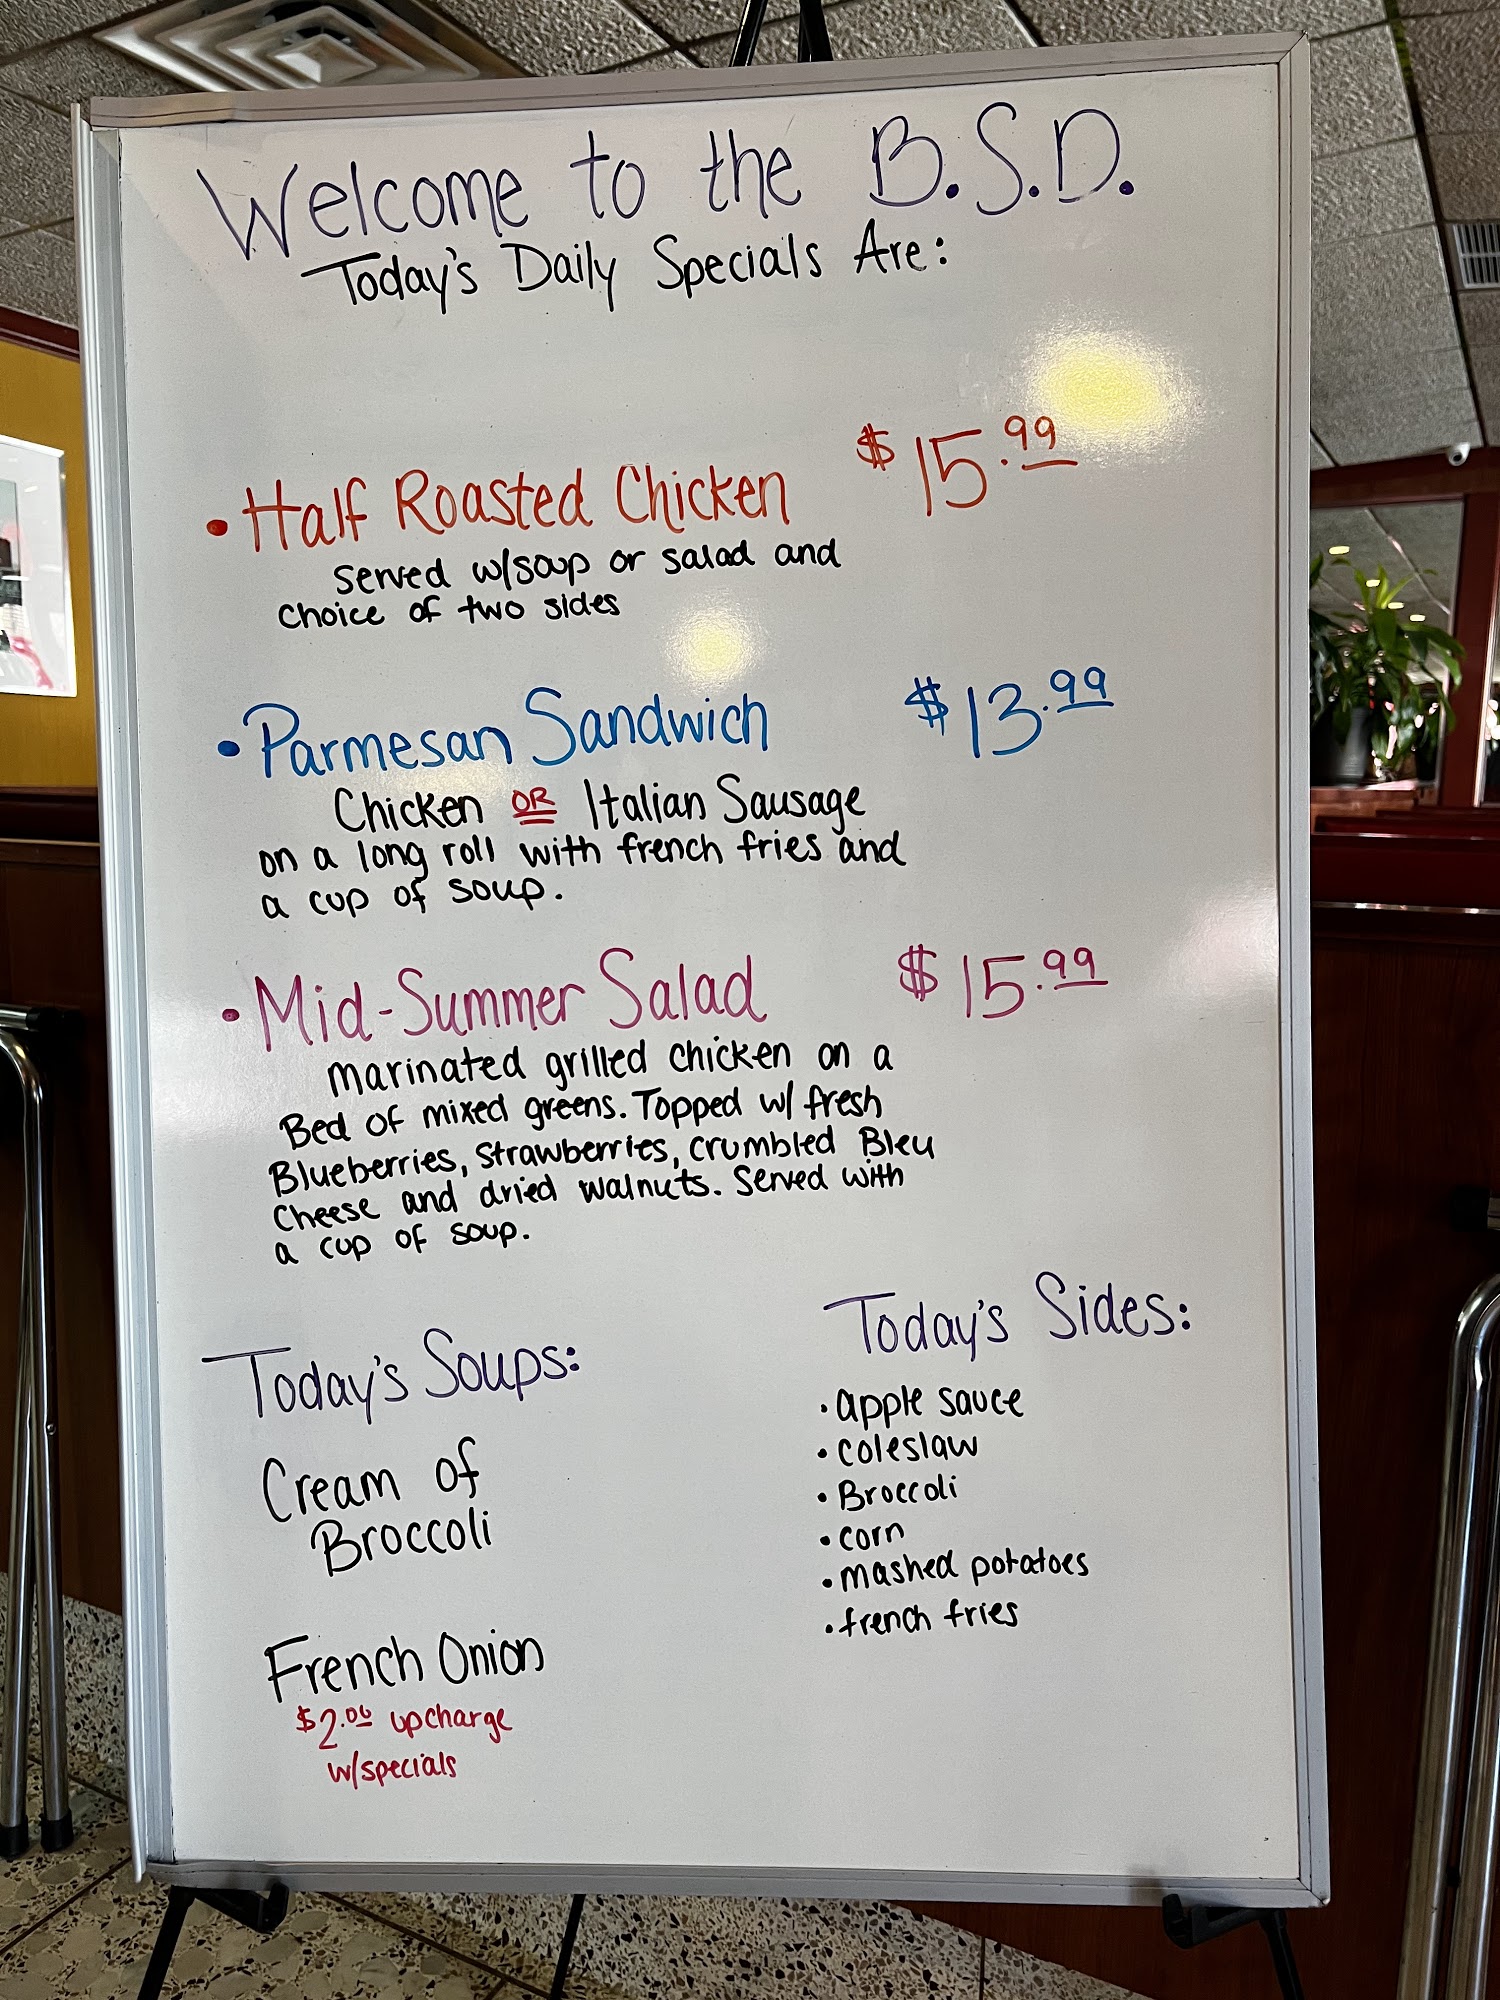 Welcome to the B.S.D.
Today's Daily Specials Are:
• Half Roasted Chicken $15.99
served w/soup or salad and
choice of two sides
• Parmesan Sandwich $13.99
Chicken OR Italian Sausage
on a long roll with french fries and
a cup of soup.
• Mid-Summer Salad $15.99
marinated grilled chicken on a
Bed of mixed greens. Topped w/ fresh
Blueberries, strawberries, crumbled Bleu
Cheese and dried walnuts. Served with
a cup of soup.
Today's Soups:
Cream of
Broccoli
French Onion
$2.00 upcharge
w/specials
Today's Sides:
• apple sauce
• coleslaw
• Broccoli
• corn
• mashed potatoes
• french fries